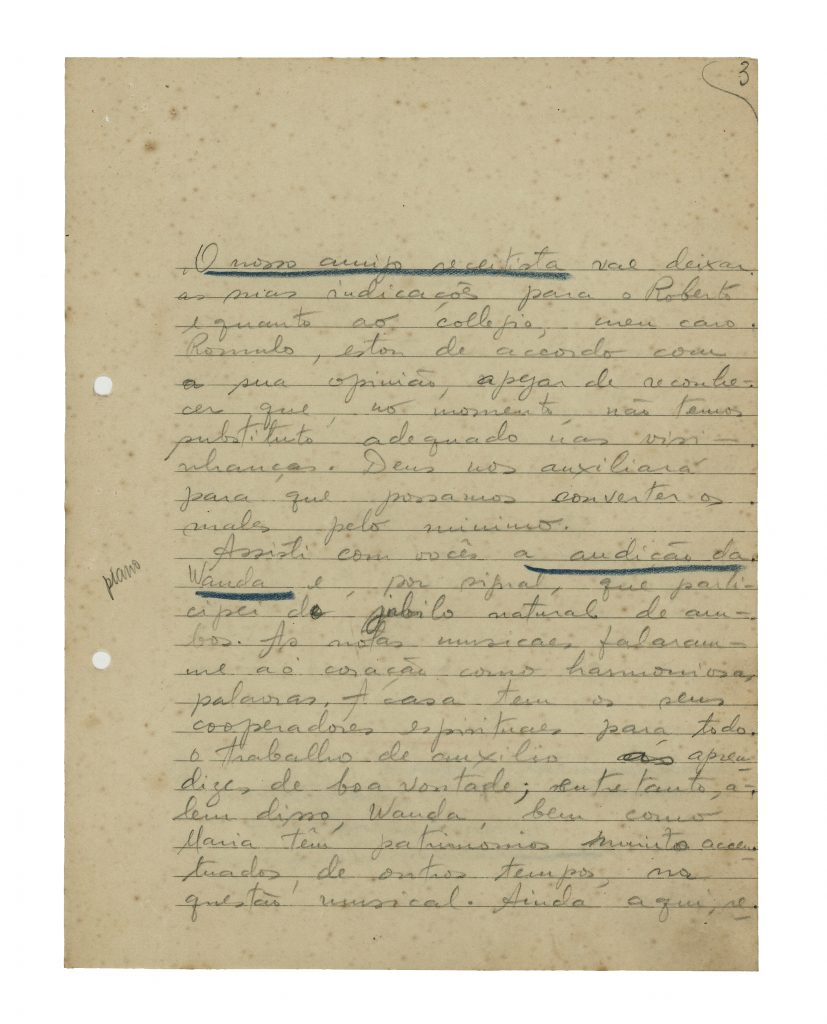 3
O nosso amigo receitista vae deixar
as suas indicações para o Roberto
e quanto ao collegio, meu caro
Romulo, estou de accordo com
a sua opinião, apezar de reconhe-
cer que, no momento, não temos
substituto adequado nas visi-
nhanças. Deus nos auxiliará
para que possamos converter os
males pelo minimo.
Assisti com vocês a audição da
plano
Wanda e, por signal, que parti-
cipei do jubilo natural de am-
bos. As notas musicaes falaram-
me ao coração como harmoniosas
palavras. A casa tem os seus
cooperadores espirituaes para todo
o trabalho de auxilio aos apren-
dizes de boa vontade; entretanto, a-
lem disso, Wanda, bem como
Maria têm patrimonios muito accen-
tuados, de outros tempos, na
questão musical. Ainda aqui, re-